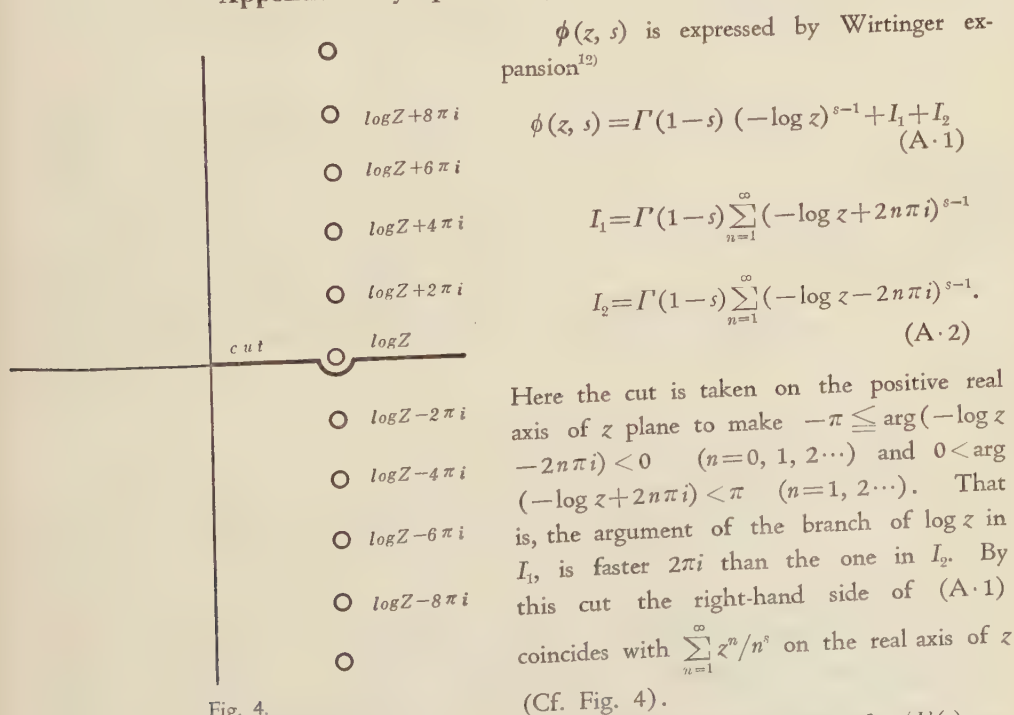 cut
logZ+8πi
logZ+6πi
logZ+4πi
logZ+2πi
logZ
logZ−2πi
logZ−4πi
logZ−6πi
logZ−8πi
Fig. 4.
ϕ(z, s) is expressed by Wirtinger ex-
pansion¹²⁾
ϕ(z, s)=Γ(1−s) (−log z)^{s−1}+I₁+I₂
(A·1)
I₁=Γ(1−s)∑_{n=1}^{∞}(−log z+2nπi)^{s−1}
I₂=Γ(1−s)∑_{n=1}^{∞}(−log z−2nπi)^{s−1}.
(A·2)
Here the cut is taken on the positive real
axis of z plane to make −π≦arg(−log z
−2nπi)<0 (n=0, 1, 2···) and 0<arg
(−log z+2nπi)<π (n=1, 2···). That
is, the argument of the branch of log z in
I₁, is faster 2πi than the one in I₂. By
this cut the right-hand side of (A·1)
coincides with ∑_{n=1}^{∞} zⁿ/nˢ on the real axis of z
(Cf. Fig. 4).